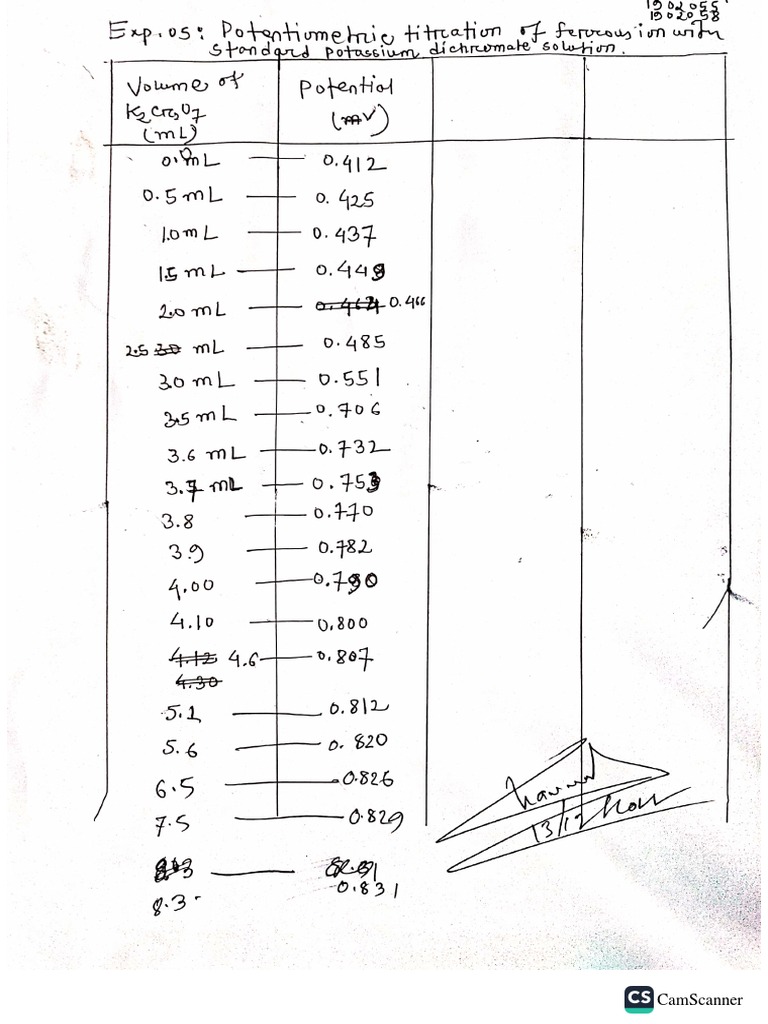 1902055
1902058
Exp. 05: Potentiometric titration of ferrous ion with
standard potassium dichromate solution.
Volume of K2Cr2O7 (mL) Potential (mV)
0.0 mL — 0.412
0.5 mL — 0.425
1.0 mL — 0.437
1.5 mL — 0.449
2.0 mL — 0.466
2.5 mL — 0.485
3.0 mL — 0.551
3.5 mL — 0.706
3.6 mL — 0.732
3.7 mL — 0.753
3.8 — 0.770
3.9 — 0.782
4.00 — 0.790
4.10 — 0.800
4.12 4.6 — 0.807
4.30
5.1 — 0.812
5.6 — 0.820
6.5 — 0.826
7.5 — 0.829
8.3 0.831
13/12
CS CamScanner